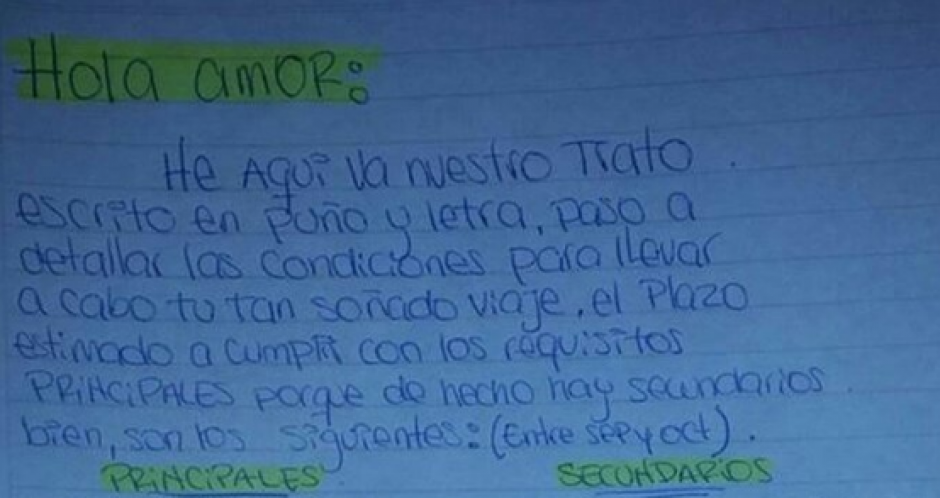 Hola amor:
He Aquí va nuestro Trato.
escrito en puño y letra, paso a
detallar las condiciones para llevar
a cabo tu tan soñado viaje, el Plazo
estimado a cumplir con los requisitos
PRINCIPALES porque de hecho hay secundarios.
bien, son los siguientes: (Entre sep y oct).
PRINCIPALES SECUNDARIOS